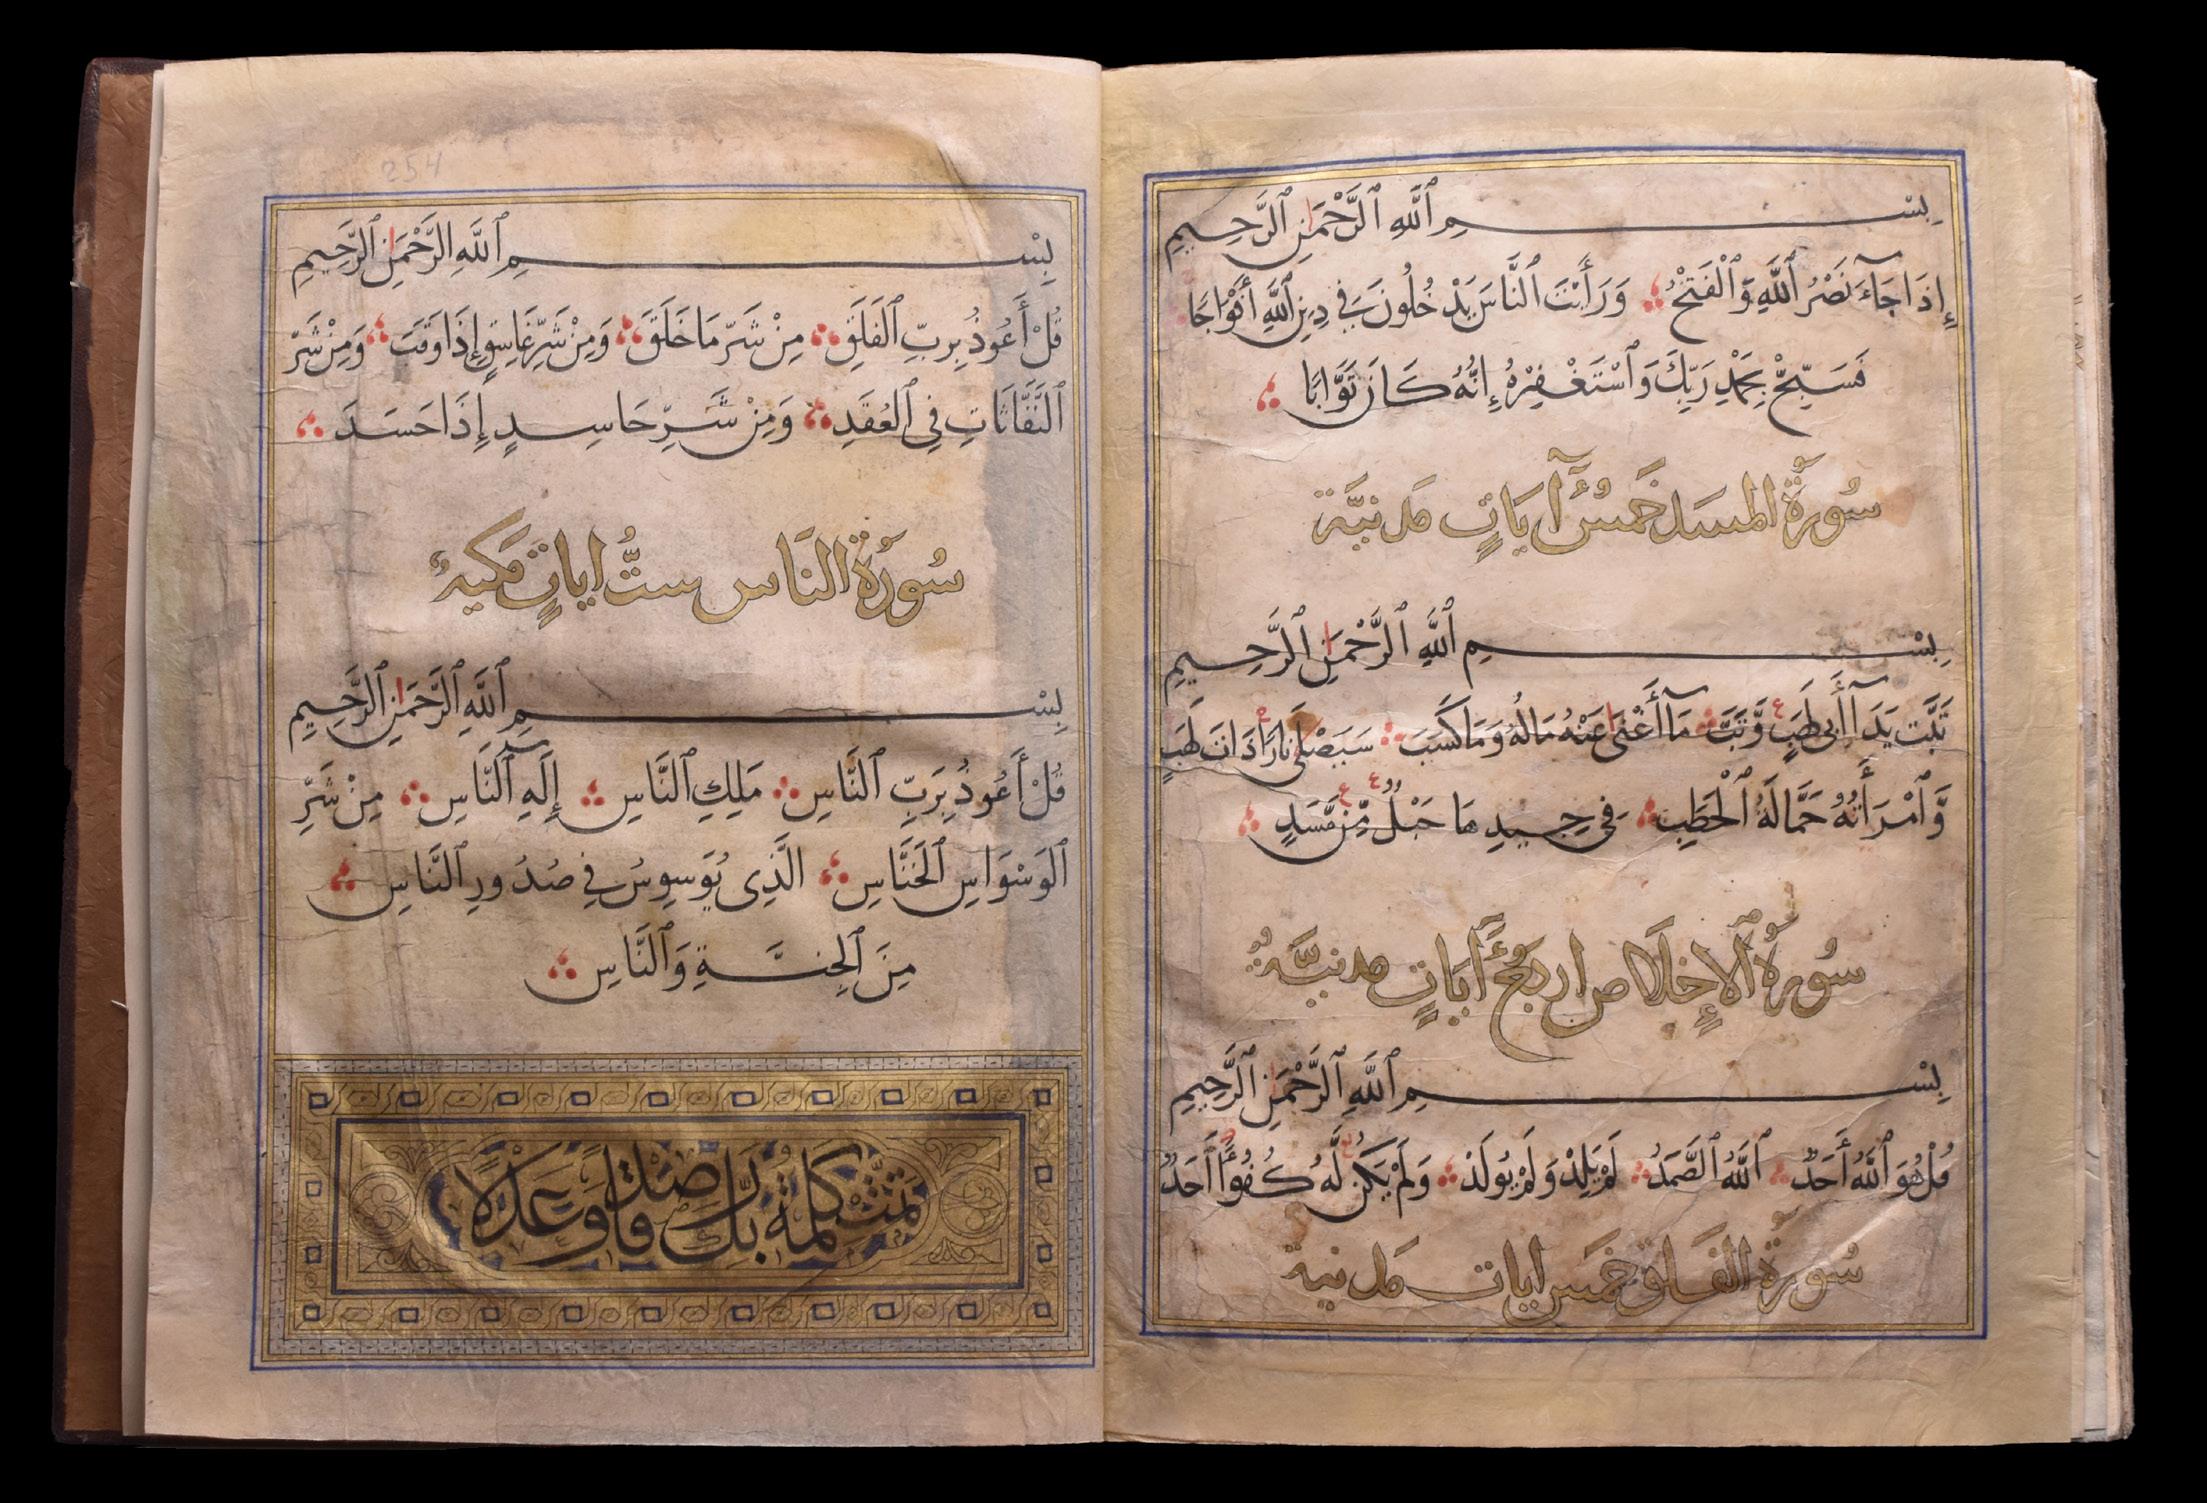 بِسْمِ ٱللَّهِ ٱلرَّحْمَٰنِ ٱلرَّحِيمِ
إِذَا جَآءَ نَصْرُ ٱللَّهِ وَٱلْفَتْحُ وَرَأَيْتَ ٱلنَّاسَ يَدْخُلُونَ فِي دِينِ ٱللَّهِ أَفْوَاجًا
فَسَبِّحْ بِحَمْدِ رَبِّكَ وَٱسْتَغْفِرْهُ إِنَّهُ كَانَ تَوَّابًا
سُورَةُ المسد خَمْسُ آيَاتٍ مَدنيَّة
بِسْمِ ٱللَّهِ ٱلرَّحْمَٰنِ ٱلرَّحِيمِ
تَبَّت يَدَآ أَبِي لَهَبٍ وَّتَبَّ مَآ أَغْنَىٰ عَنْهُ مَالُهُ وَمَا كَسَبَ سَيَصْلَىٰ نَارًا ذَاتَ لَهَبٍ
وَّٱمْرَأَتُهُ حَمَّالَةُ ٱلْحَطَبِ فِي جِيدِهَا حَبْلٌ مِّن مَّسَدٍ
سُورَةُ ٱلإِخلَاص اربعُ أَيَاتٍ مدنيَّةٌ
بِسْمِ ٱللَّهِ ٱلرَّحْمَٰنِ ٱلرَّحِيمِ
قُلْ هُوَ ٱللَّهُ أَحَدٌ ٱللَّهُ ٱلصَّمَدُ لَمْ يَلِدْ وَلَمْ يُولَدْ وَلَمْ يَكُن لَّهُ كُفُوًا أَحَدٌ
سُورَةُ الفَلَق خَمَس ايات مَدنية
254
بِسْمِ ٱللَّهِ الرَّحْمَٰنِ ٱلرَّحِيمِ
قُلْ أَعُوذُ بِرَبِّ ٱلفَلَقِ مِنْ شَرِّ مَا خَلَقَ وَمِنْ شَرِّ غَاسِقٍ إِذَا وَقَبَ وَمِنْ شَرِّ
ٱلنَّفَّاثَاتِ فِي ٱلعُقَدِ وَمِنْ شَرِّ حَاسِدٍ إِذَا حَسَدَ
سُورَةُ النَاس ستُّ اياتٍ مَكيةٌ
بِسْمِ ٱللَّهِ ٱلرَّحْمَٰنِ ٱلرَّحِيمِ
قُلْ أَعُوذُ بِرَبِّ ٱلنَّاسِ مَلِكِ ٱلنَّاسِ إِلَهِ ٱلنَّاسِ مِنْ شَرِّ
ٱلوَسْوَاسِ ٱلخَنَّاسِ الَّذِى يُوَسوِسُ فِي صُدُورِ ٱلنَّاسِ
مِنَ ٱلجِنَّةِ وَٱلنَّاسِ
تمَّتْ كَلِمَةُ رَبِّكَ صِدْقًا وَعَدْلًا